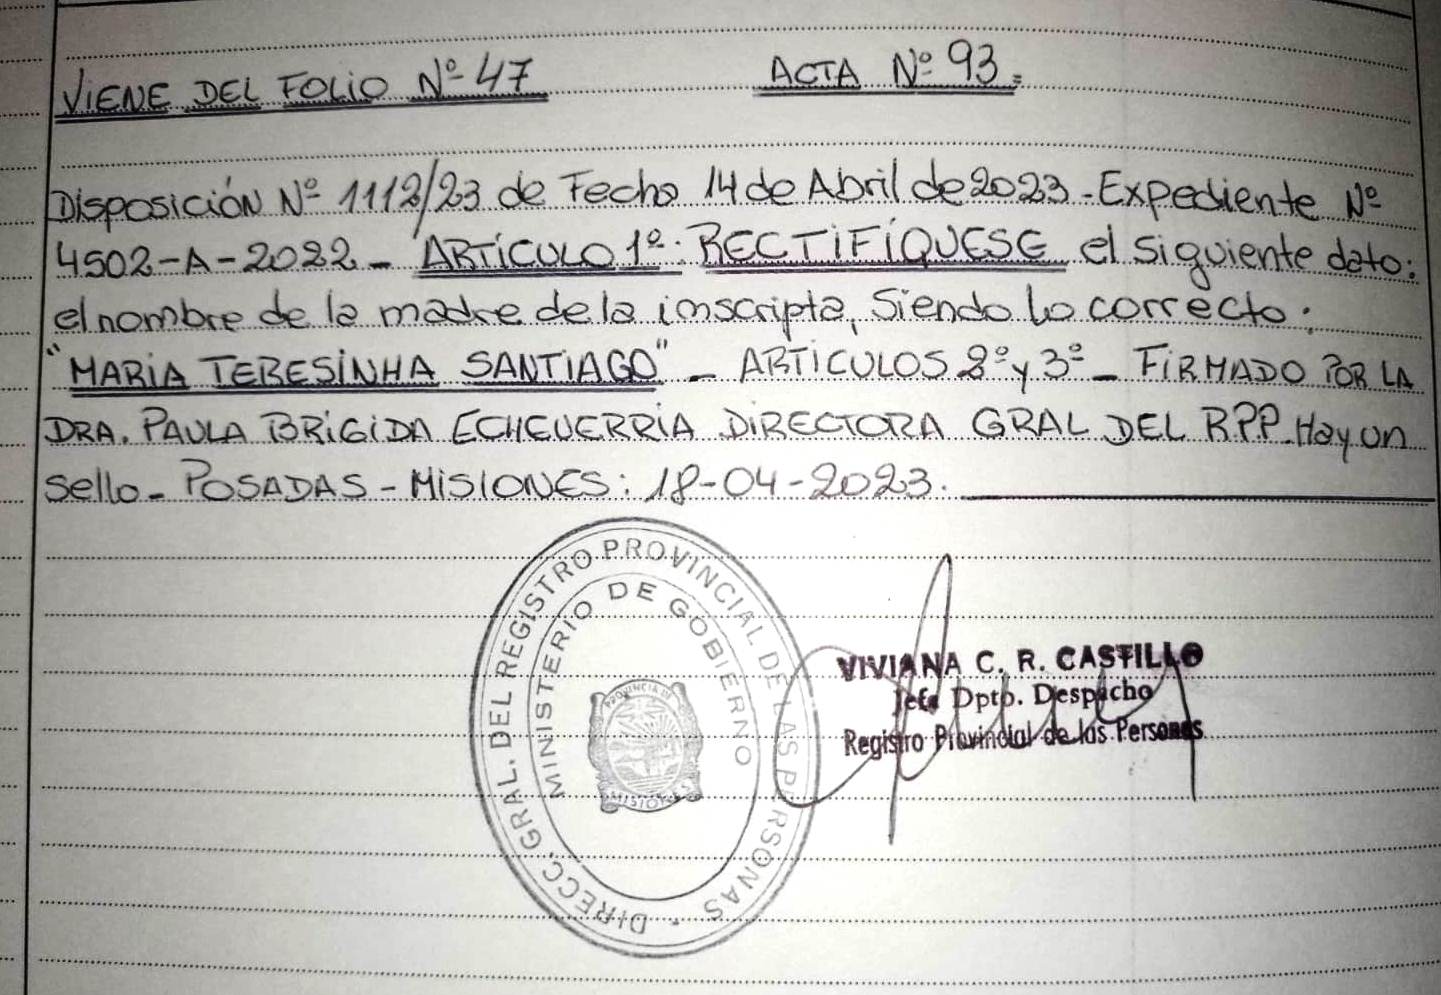 VIENE DEL FOLIO Nº 47 ACTA Nº 93=
Disposición Nº 1112/23 de Fecha 14 de Abril de 2023.-Expediente Nº
4502-A-2022- ARTÍCULO 1º: RECTIFÍQUESE el siguiente dato:
el nombre de la madre de la inscripta, siendo lo correcto:
"MARIA TERESINHA SANTIAGO" - ARTICULOS 2º y 3º - FIRMADO POR LA
DRA. PAULA BRIGIDA ECHEVERRIA DIRECTORA GRAL DEL RPP. Hay un
sello- POSADAS - MISIONES: 18-04-2023.
DIRECC. GRAL. DEL REGISTRO PROVINCIAL DE LAS PERSONAS
MINISTERIO DE GOBIERNO
PROVINCIA DE
MISIONES
VIVIANA C. R. CASTILLO
Jefa Dpto. Despacho
Registro Provincial de las Personas